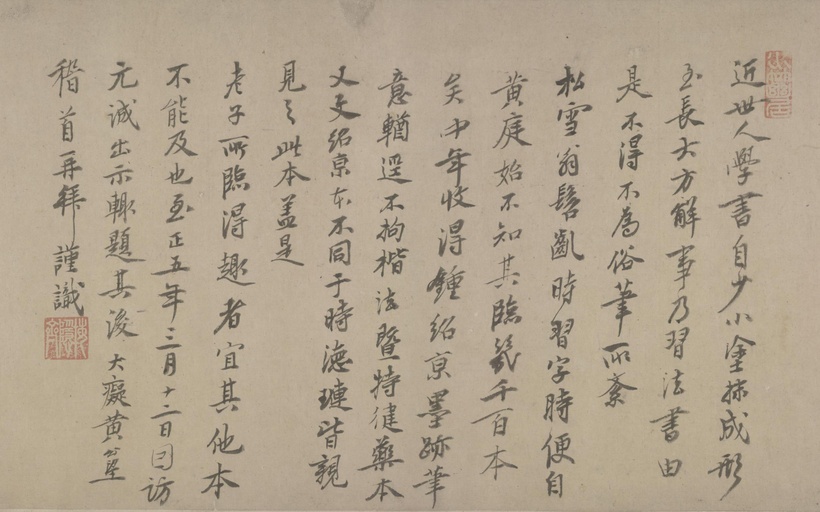 近世人學書自少小塗抹成形
至長大方解事乃習法書由
是不得不為俗筆所紊
松雪翁髫齓時習字時便自
黃庭始不知其臨幾千百本
矣中年收得鍾紹京墨跡筆
意輶逕不拘楷法暨特健藥本
又受紹京本不同于時德璉皆親
見之此本蓋是
老子所臨得趣者宜其他本
不能及也至正五年三月十二日因訪
元誠出示輙題其後大癡黃公望
稽首再拜謹識